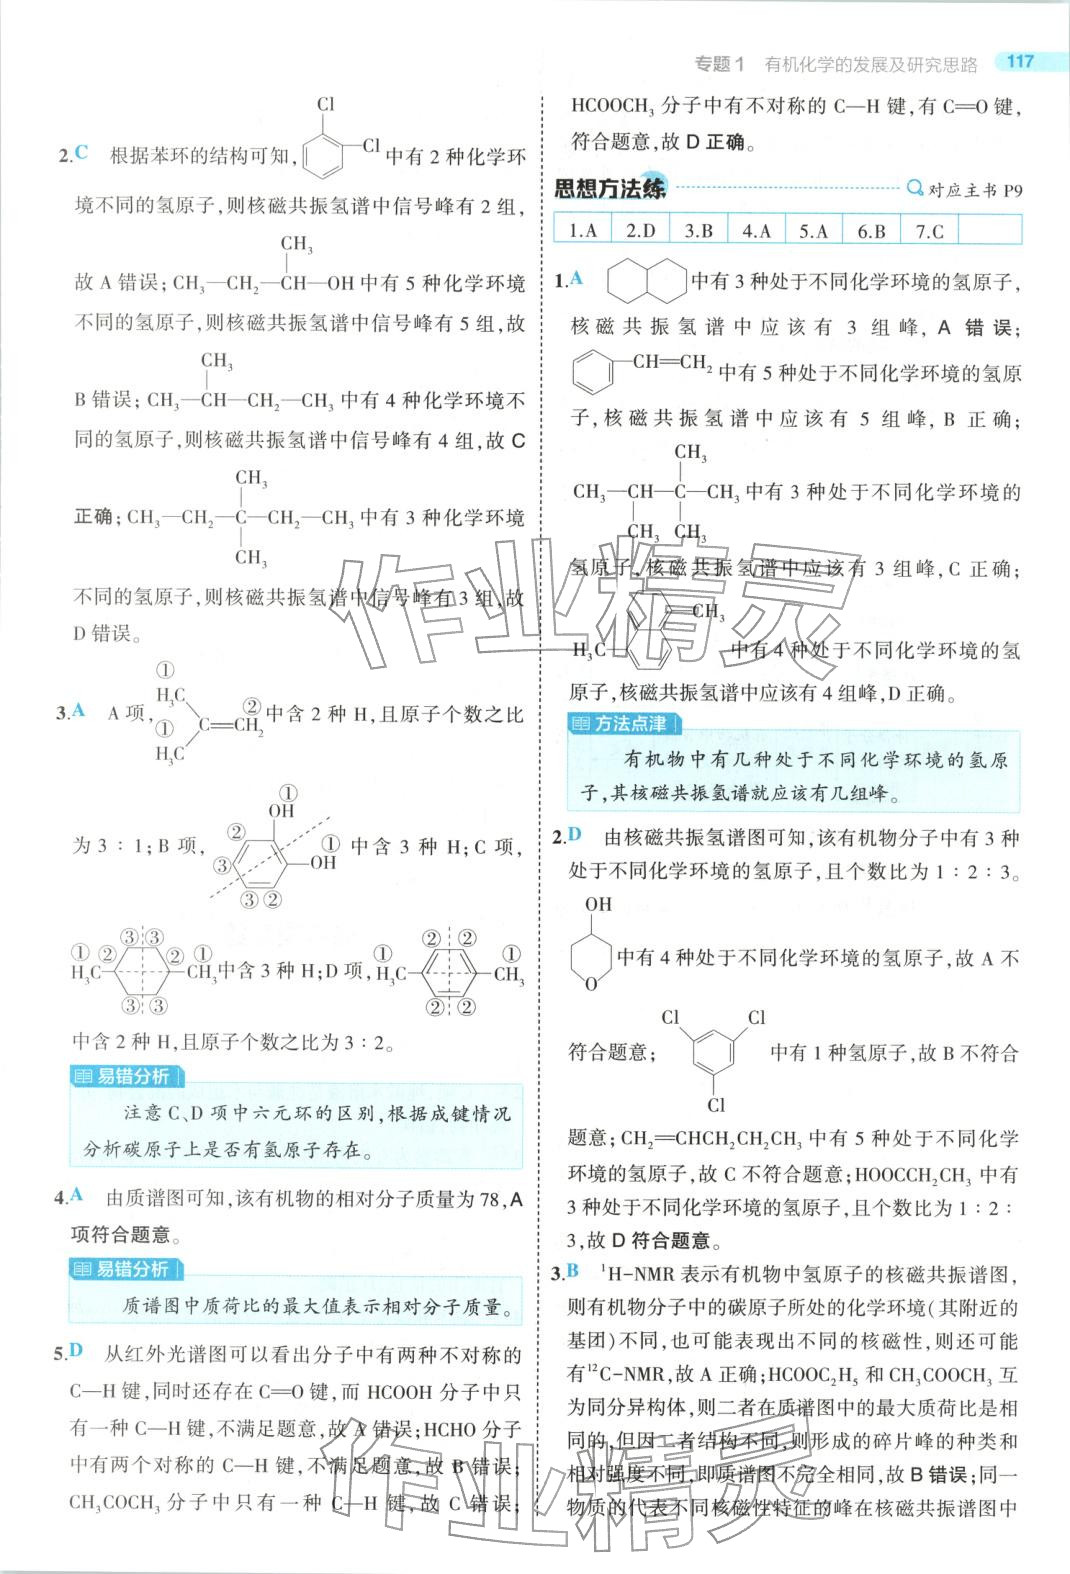 专题1 有机化学的发展及研究思路 117
Cl
2.C 根据苯环的结构可知, Cl 中有 2 种化学环
境不同的氢原子,则核磁共振氢谱中信号峰有 2 组,
CH₃
故 A 错误; CH₃—CH₂—CH—OH 中有 5 种化学环境
不同的氢原子,则核磁共振氢谱中信号峰有 5 组,故
CH₃
B 错误; CH₃—CH—CH₂—CH₃ 中有 4 种化学环境不
同的氢原子,则核磁共振氢谱中信号峰有 4 组,故 C
CH₃
正确; CH₃—CH₂—C—CH₂—CH₃ 中有 3 种化学环境
CH₃
不同的氢原子,则核磁共振氢谱中信号峰有 3 组,故
D 错误。
①
H₃C
3.A A 项, ① C═CH₂ ② 中含 2 种 H,且原子个数之比
H₃C
①
OH
②
为 3∶1;B 项, ③ OH ① 中含 3 种 H;C 项,
③ ②
③ ③ ② ②
① ② ② ① ① ①
H₃C CH₃中含 3 种 H;D 项, H₃C CH₃
③ ③ ② ②
中含 2 种 H,且原子个数之比为 3∶2。
易错分析
注意 C、D 项中六元环的区别,根据成键情况
分析碳原子上是否有氢原子存在。
4.A 由质谱图可知,该有机物的相对分子质量为 78,A
项符合题意。
易错分析
质谱图中质荷比的最大值表示相对分子质量。
5.D 从红外光谱图可以看出分子中有两种不对称的
C—H 键,同时还存在 C═O 键,而 HCOOH 分子中只
有一种 C—H 键,不满足题意,故 A 错误;HCHO 分子
中有两个对称的 C—H 键,不满足题意,故 B 错误;
CH₃COCH₃ 分子中只有一种 C—H 键,故 C 错误;
HCOOCH₃ 分子中有不对称的 C—H 键,有 C═O 键,
符合题意,故 D 正确。
思想方法练 对应主书 P9
1.A 2.D 3.B 4.A 5.A 6.B 7.C
1.A 中有 3 种处于不同化学环境的氢原子,
核磁共振氢谱中应该有 3 组峰, A 错误;
CH═CH₂ 中有 5 种处于不同化学环境的氢原
子,核磁共振氢谱中应该有 5 组峰, B 正确;
CH₃
CH₃—CH—C—CH₃ 中有 3 种处于不同化学环境的
CH₃ CH₃
氢原子,核磁共振氢谱中应该有 3 组峰,C 正确;
CH₃
H₃C 中有 4 种处于不同化学环境的氢
原子,核磁共振氢谱中应该有 4 组峰,D 正确。
方法点津
有机物中有几种处于不同化学环境的氢原
子,其核磁共振氢谱就应该有几组峰。
2.D 由核磁共振氢谱图可知,该有机物分子中有 3 种
处于不同化学环境的氢原子,且个数比为 1∶2∶3。
OH
中有 4 种处于不同化学环境的氢原子,故 A 不
O
Cl Cl
符合题意; 中有 1 种氢原子,故 B 不符合
Cl
题意;CH₂═CHCH₂CH₂CH₃ 中有 5 种处于不同化学
环境的氢原子,故 C 不符合题意;HOOCCH₂CH₃ 中有
3 种处于不同化学环境的氢原子,且个数比为 1∶2∶
3,故 D 符合题意。
3.B ¹H-NMR 表示有机物中氢原子的核磁共振谱图,
则有机物分子中的碳原子所处的化学环境(其附近的
基团)不同,也可能表现出不同的核磁性,则还可能
有¹²C-NMR,故 A 正确;HCOOC₂H₅ 和 CH₃COOCH₃ 互
为同分异构体,则二者在质谱图中的最大质荷比是相
同的,但因二者结构不同,则形成的碎片峰的种类和
相对强度不同,即质谱图不完全相同,故 B 错误;同一
物质的代表不同核磁性特征的峰在核磁共振谱图中
作业精灵
作业精灵